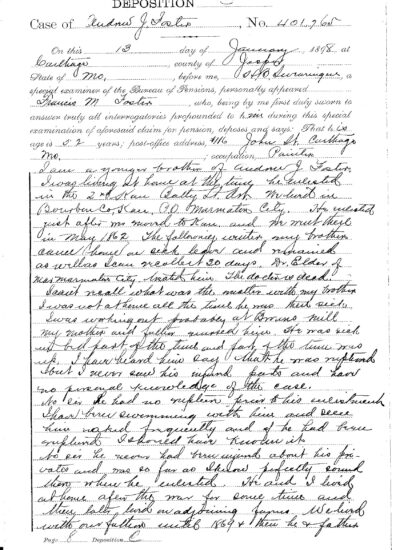 DEPOSITION
Case of Andrew J. Foster, No. 401.765
On this 13 day of January 1898 at
Carthage, county of Jasper
State of Mo., before me, a
special examiner of the Bureau of Pensions, personally appeared
Francis M. Foster, who, being by me first duly sworn to
answer truly all interrogatories propounded to him during this special
examination of aforesaid claim for pension, deposes and says: That he is
age is 52 years; post-office address, #116 John St. Carthage
Mo. ; occupation, Painter
I am a younger brother of Andrew J. Foster.
I was living at home at the time he enlisted
in the 2nd Kan Batty Lt. Art. We lived in
Bourbon Co, Kan, P.O. Marmaton City. He enlisted
just after we moved to Kan, and we went there
in May 1862. The following winter, my brother
came home on sick leave and remained
as well as I can recollect 20 days. Dr. Elder of
Marmaton City treated him. The doctor is dead.
I can't recall what was the matter with my brother
I was not at home all the time he was there sick.
I was working out probably at Mill.
My mother and father nursed him. He was sick
in bed part of the time and part of the time was
up. I have heard him say that he was ruptured
but I never saw his injured parts and have
no personal knowledge of the case.
No sir he had no ruption prior to his enlistment
I had been swimming with him and seen
him naked frequently and if he had been
ruptured I should have known it
No sir he never had been injured about his pri-
vates and was so far as I know perfectly sound
then when he enlisted. He and I lived
at home after the war for some time and
then later lived on adjoining farms. We lived
with our father until 1869 & then he & father
Page Deposition C